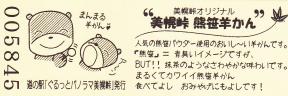 005845
まんまる
羊かん
道の駅「ぐるっとパノラマ美幌峠」発行
美幌峠オリジナル
"美幌峠 熊笹羊かん"
人気の熊笹パウダー使用のおいし～い羊かんです。
『熊笹』= 青臭いイメージですが、
BUT!! 抹茶のようなさわやかな味わいです。
まるくてカワイイ熊笹羊かん
食べてよし おみやげにもよしです!